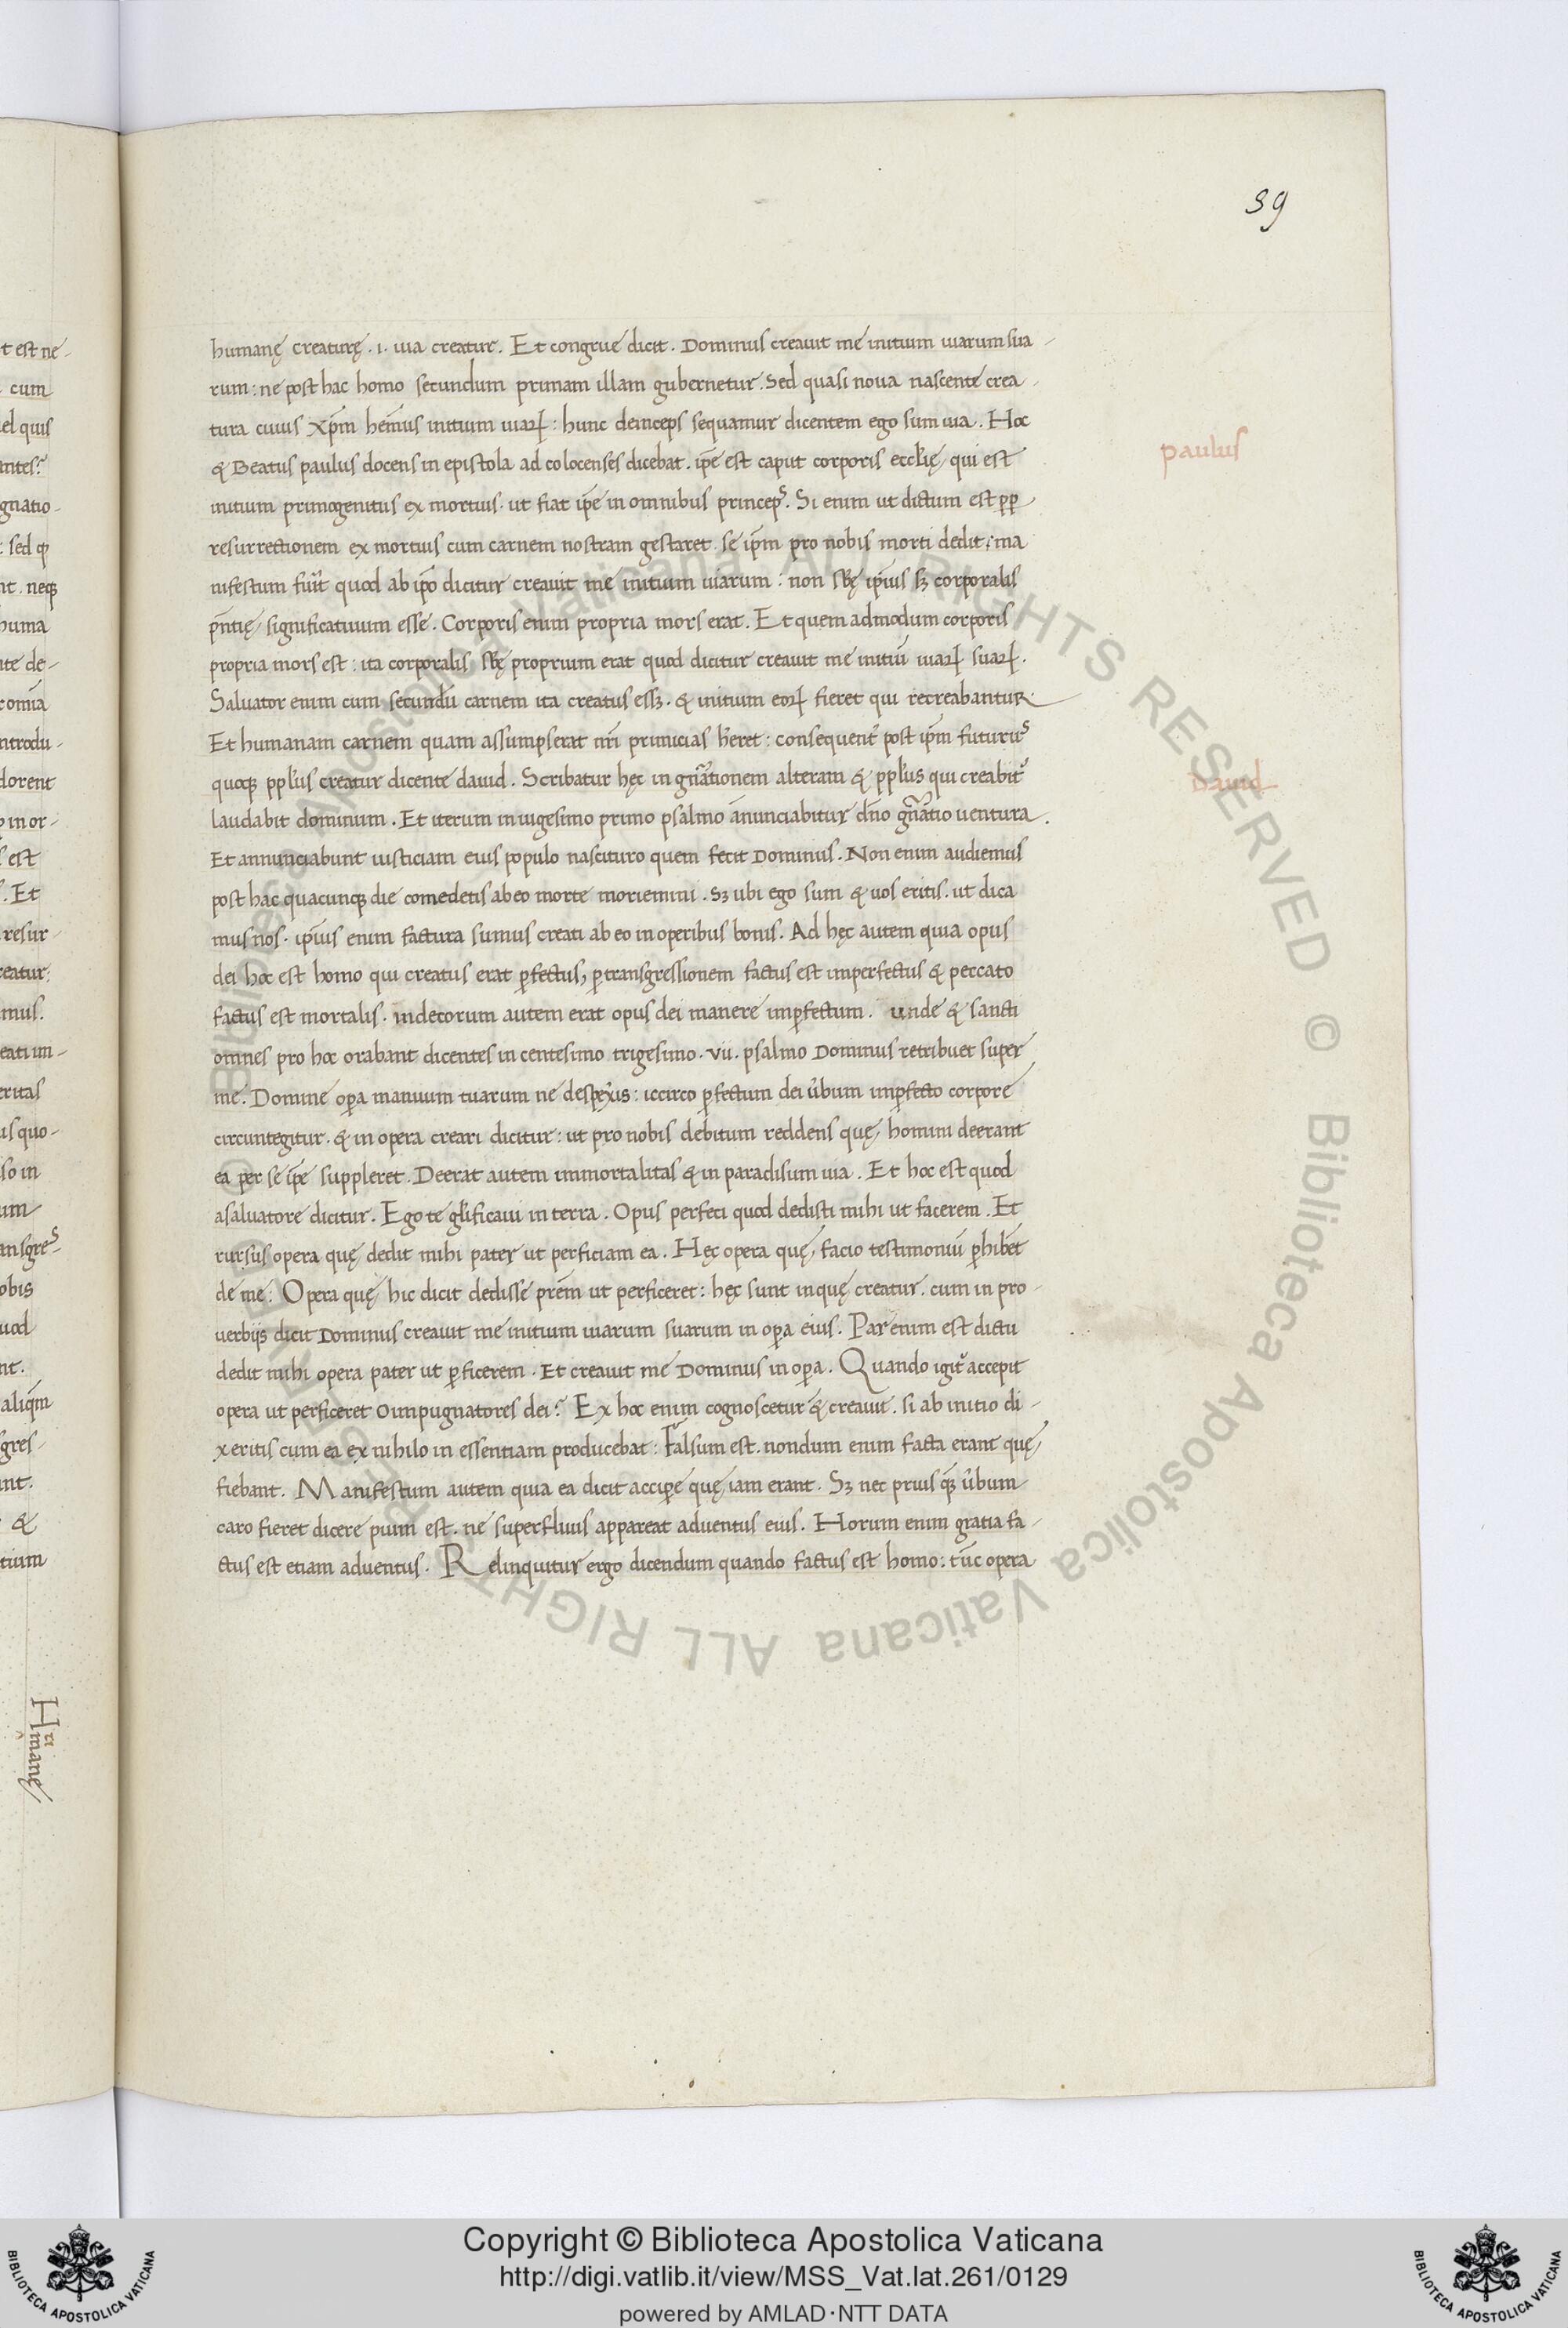 39
humanę creaturę .i. uia creatur. Et congrue dicit. Dominus creauit me initium uiarum sua-
rum: ne post hac homo secundum primam illam gubernetur. Sed quasi noua nascente crea-
tura cuius xp̄m hēmus initium uiaꝝ: hunc deinceps sequamur dicentem ego sum uia. Hoc
& Beatus paulus docens in epistola ad colocenses dicebat. ip̄e est caput corporis eccl̄ię, qui est
paulus
initium primogenitus ex mortuis. ut fiat ip̄e in omnibus princeps. Si enim ut dictum est pp̄
resurrectionem ex mortuis cum carnem nostram gestaret se ip̄m pro nobis morti dedit: ma
nifestum fuit quod ab ip̄o dicitur creauit me initium uiarum: non sb̄ę ip̄ius sꝫ corporalis
p̄ntię, significatiuum esse. Corporis enim propria mors erat. Et quem admodum corporis
propria mors est: ita corporalis sb̄ę proprium erat quod dicitur creauit me initiū uiaꝝ suaꝝ.
Saluator enim cum secundū carnem ita creatus essꝫ. & initium eoꝝ fieret qui recreabantur.
Et humanam carnem quam assumpserat nr̄i primicias h̄eret: consequent̉ post ip̄m futurus
quoqꝫ ppl̄us creatur dicente dauid. Scribatur hęc in gn̄ationem alteram & ppl̄us qui creabit᷑
Dauid
laudabit dominum. Et iterum in uigesimo primo psalmo annunciabitur dn̄o gn̄atio uentura.
Et annunciabunt iusticiam eius populo nascituro quem fecit Dominus. Non enim audiemus
post hac quacunqꝫ die comedetis ab eo morte moriemini. Sꝫ ubi ego sum & uos eritis. ut dica
mus nos. ip̄ius enim factura sumus creati ab eo in operibus bonis. Ad hęc autem quia opus
dei hoc est homo qui creatus erat ꝑfectus, ꝑ transgressionem factus est imperfectus & peccato
factus est mortalis. indecorum autem erat opus dei manere imꝑfectum. unde & sancti
omnes pro hoc orabant dicentes in centesimo trigesimo .vii. psalmo Dominus retribuet super
me. Domine oꝑa manuum tuarum ne despexis: iccirco ꝑfectum dei u̓bum imꝑfecto corpore
circuntegitur. & in opera creari dicitur: ut pro nobis debitum reddens quę, homini deerant
ea per se ip̄e suppleret. Deerat autem immortalitas & in paradisum uia. Et hoc est quod
a saluatore dicitur. Ego te gl̄ificaui in terra. Opus perfeci quod dedisti mihi ut facerem. Et
rursus opera quę, dedit mihi pater ut perficiam ea. Hęc opera quę, facio testimoniū ꝑhibet
de me: Opera quę, hic dicit dedisse prēm ut perficeret: hęc sunt in quę creatur. cum in pro-
uerbijs dicit Dominus creauit me initium uiarum suarum in oꝑa eius. Par enim est dictu
dedit mihi opera pater ut ꝑficerem. Et creauit me Dominus in oꝑa. Quando igit᷑ accepit
opera ut perficeret o impugnatores dei? Ex hoc enim cognoscetur & creauit. si ab initio di-
xeritis cum ea ex nihilo in essentiam producebat: Falsum est. nondum enim facta erant quę,
fiebant. Manifestum autem quia ea dicit acciꝑe quę, iam erant. Sꝫ nec prius qꝫ u̓bum
caro fieret dicere pium est. ne superfluus appareat aduentus eius. Horum enim gratia fa-
ctus est etiam aduentus. Relinquitur ergo dicendum quando factus est homo: tūc opera
Copyright © Biblioteca Apostolica Vaticana
http://digi.vatlib.it/view/MSS_Vat.lat.261/0129
powered by AMLAD·NTT DATA